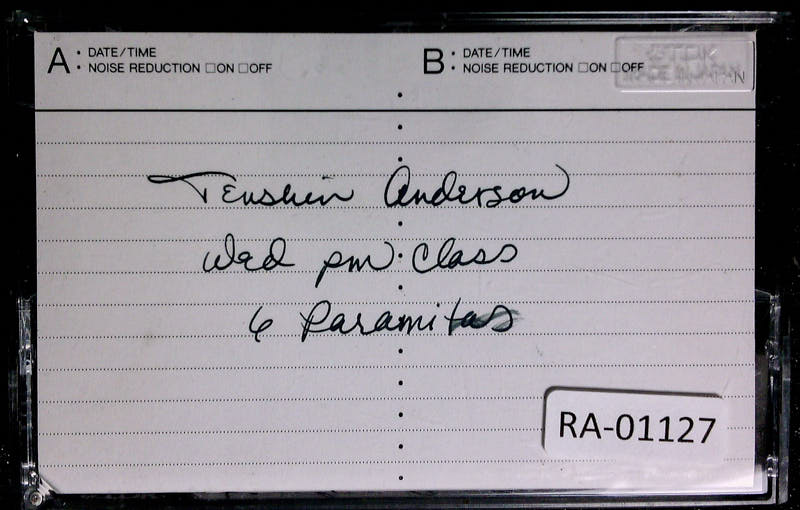 A: DATE/TIME
NOISE REDUCTION □ON □OFF
B: DATE/TIME
NOISE REDUCTION □ON □OFF
Tenshin Anderson
Wed pm class
6 Paramitas
RA-01127